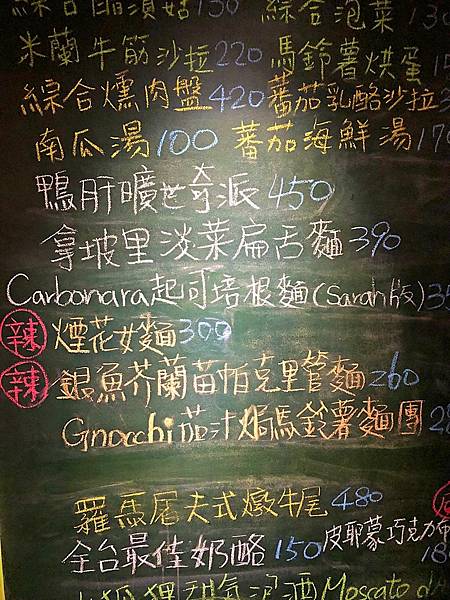 綜合醋漬菇130 綜合泡菜130
米蘭牛筋沙拉220 馬鈴薯烘蛋
綜合燻肉盤420 蕃茄乳酪沙拉
南瓜湯100 蕃茄海鮮湯170
鴨肝曠世奇派450
拿坡里淡菜扁舌麵390
Carbonara起司培根麵(Sarah版)
辣 煙花女麵300
辣 銀魚芥蘭苗帕克里管麵260
Gnocchi茄汁焗馬鈴薯麵團
羅馬屠夫式燉牛尾480
全台最佳奶酪150 皮耶蒙巧克力布
狐狸甜氣泡酒Moscato d'A